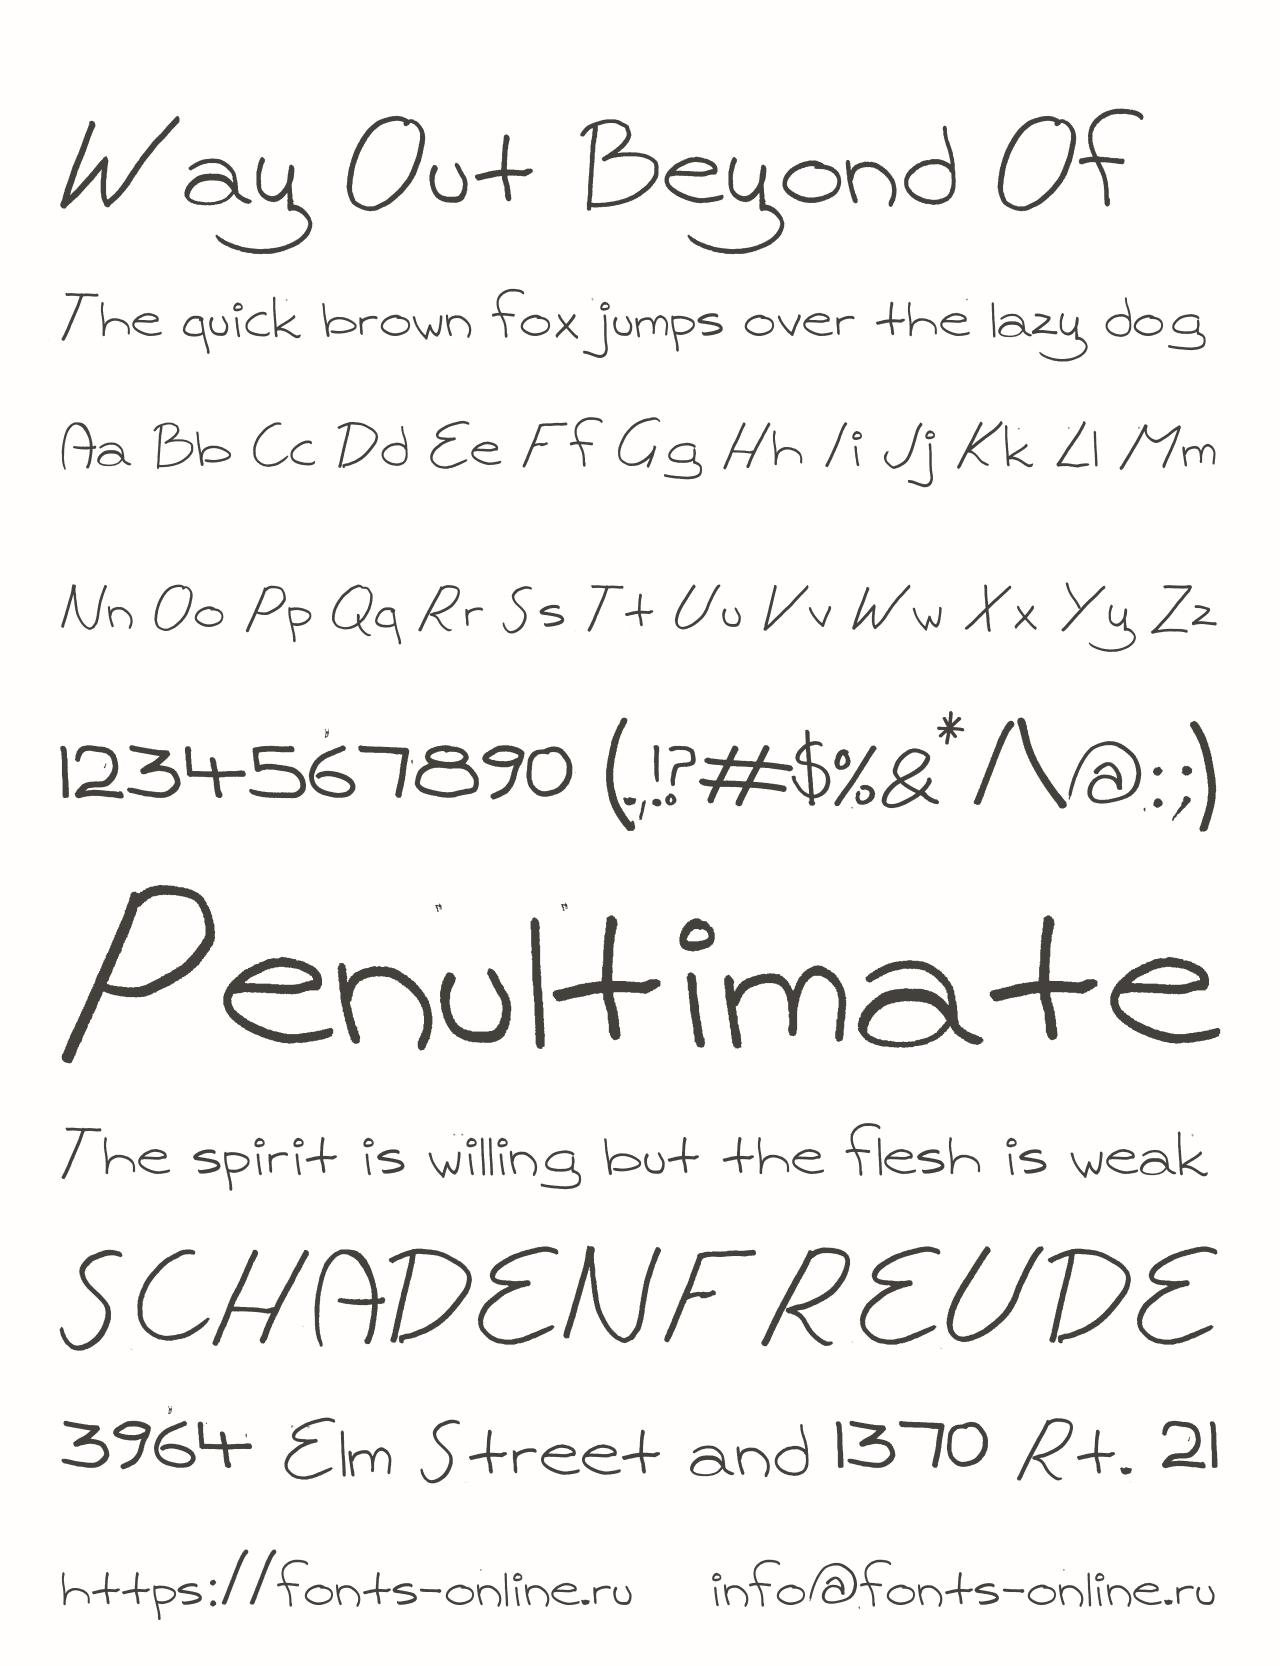 Way Out Beyond Of
The quick brown fox jumps over the lazy dog
Aa Bb Cc Dd Ee Ff Gg Hh Ii Jj Kk Ll Mm
Nn Oo Pp Qq Rr Ss Tt Uu Vv Ww Xx Yy Zz
1234567890 (.,!?#$%&* /\@:;)
Penultimate
The spirit is willing but the flesh is weak
SCHADENFREUDE
3964 Elm Street and 1370 Rt. 21
https://fonts-online.ru info@fonts-online.ru